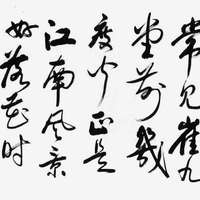 常见崔九
堂前幾
度闻正是
江南风景
好落花时